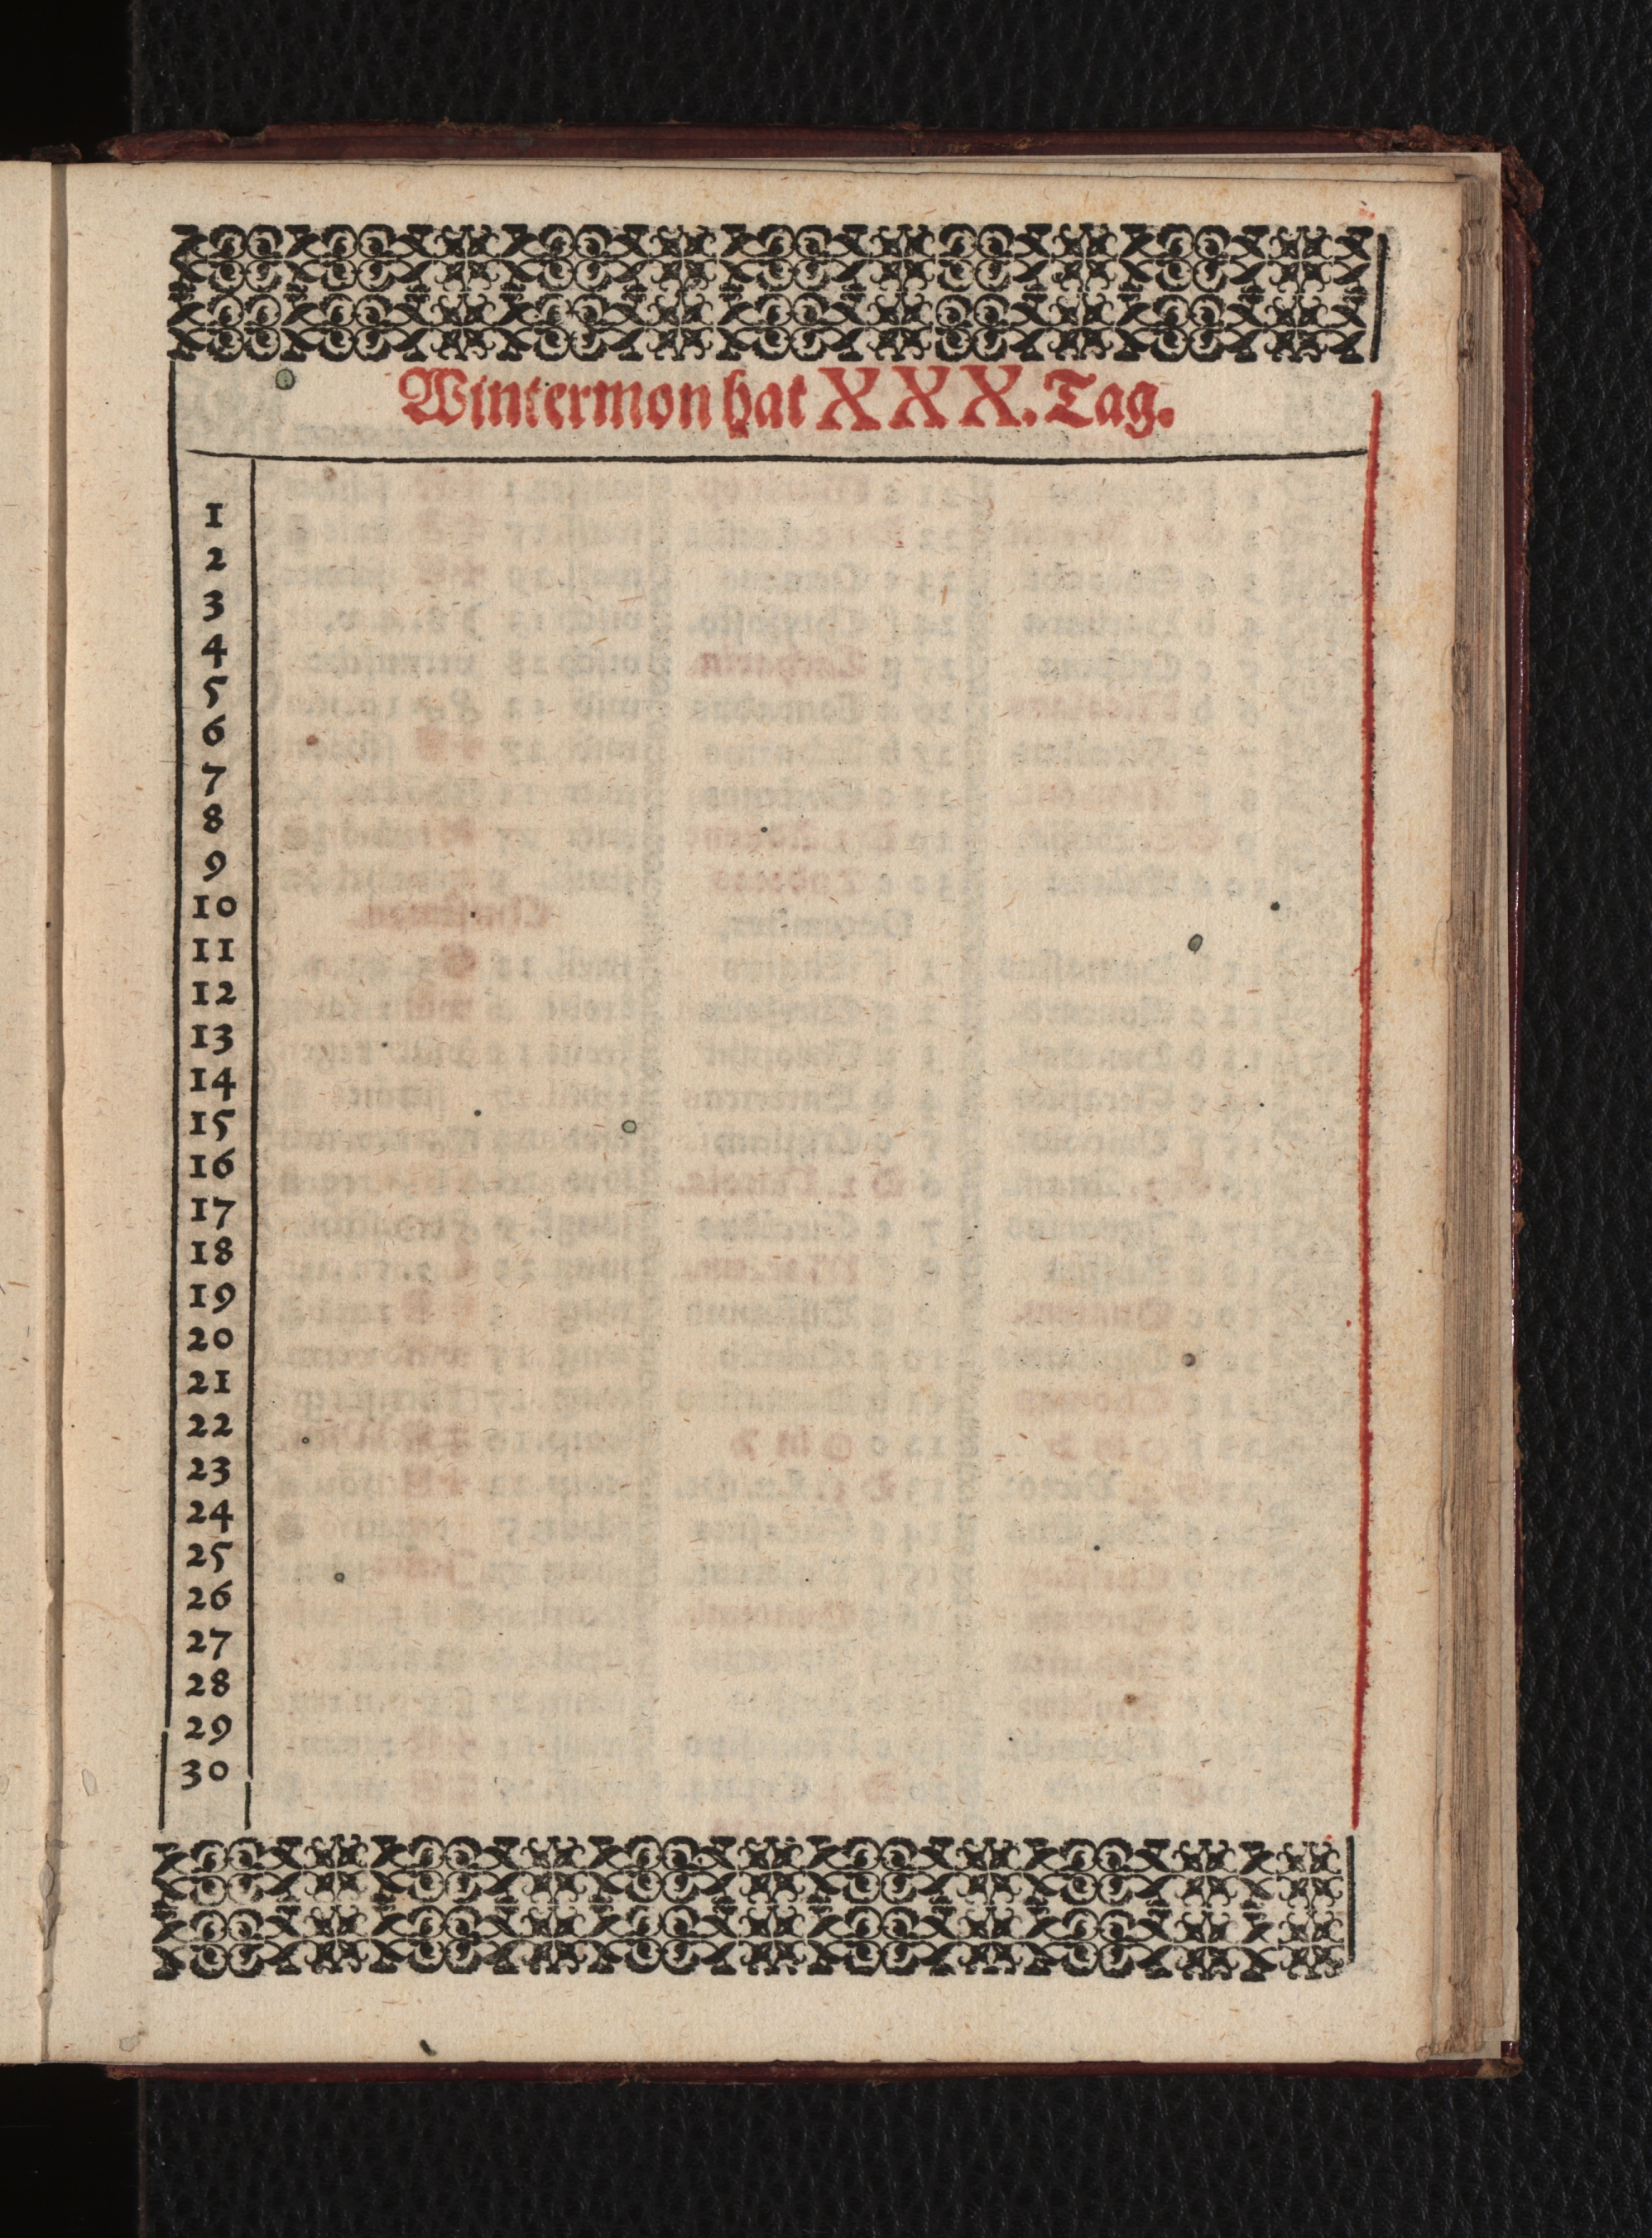 Wintermon hat XXX. Tag.
1
2
3
4
5
6
7
8
9
10
11
12
13
14
15
16
17
18
19
20
21
22
23
24
25
26
27
28
29
30